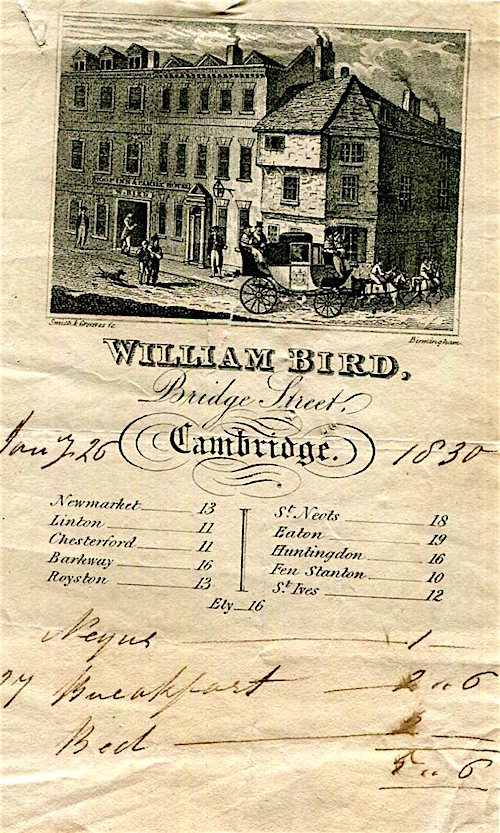 Smith & Greaves sc.
Birmingham.
WILLIAM BIRD,
Bridge Street,
Cambridge.
Jany 26 1830
Newmarket 13
Linton 11
Chesterford 11
Barkway 16
Royston 13
St Neots 18
Eaton 19
Huntingdon 16
Fen Stanton 10
St Ives 12
Ely 16
Negus 1 —
27 Breakfast 2 " 6
Bed 2 —
5 " 6